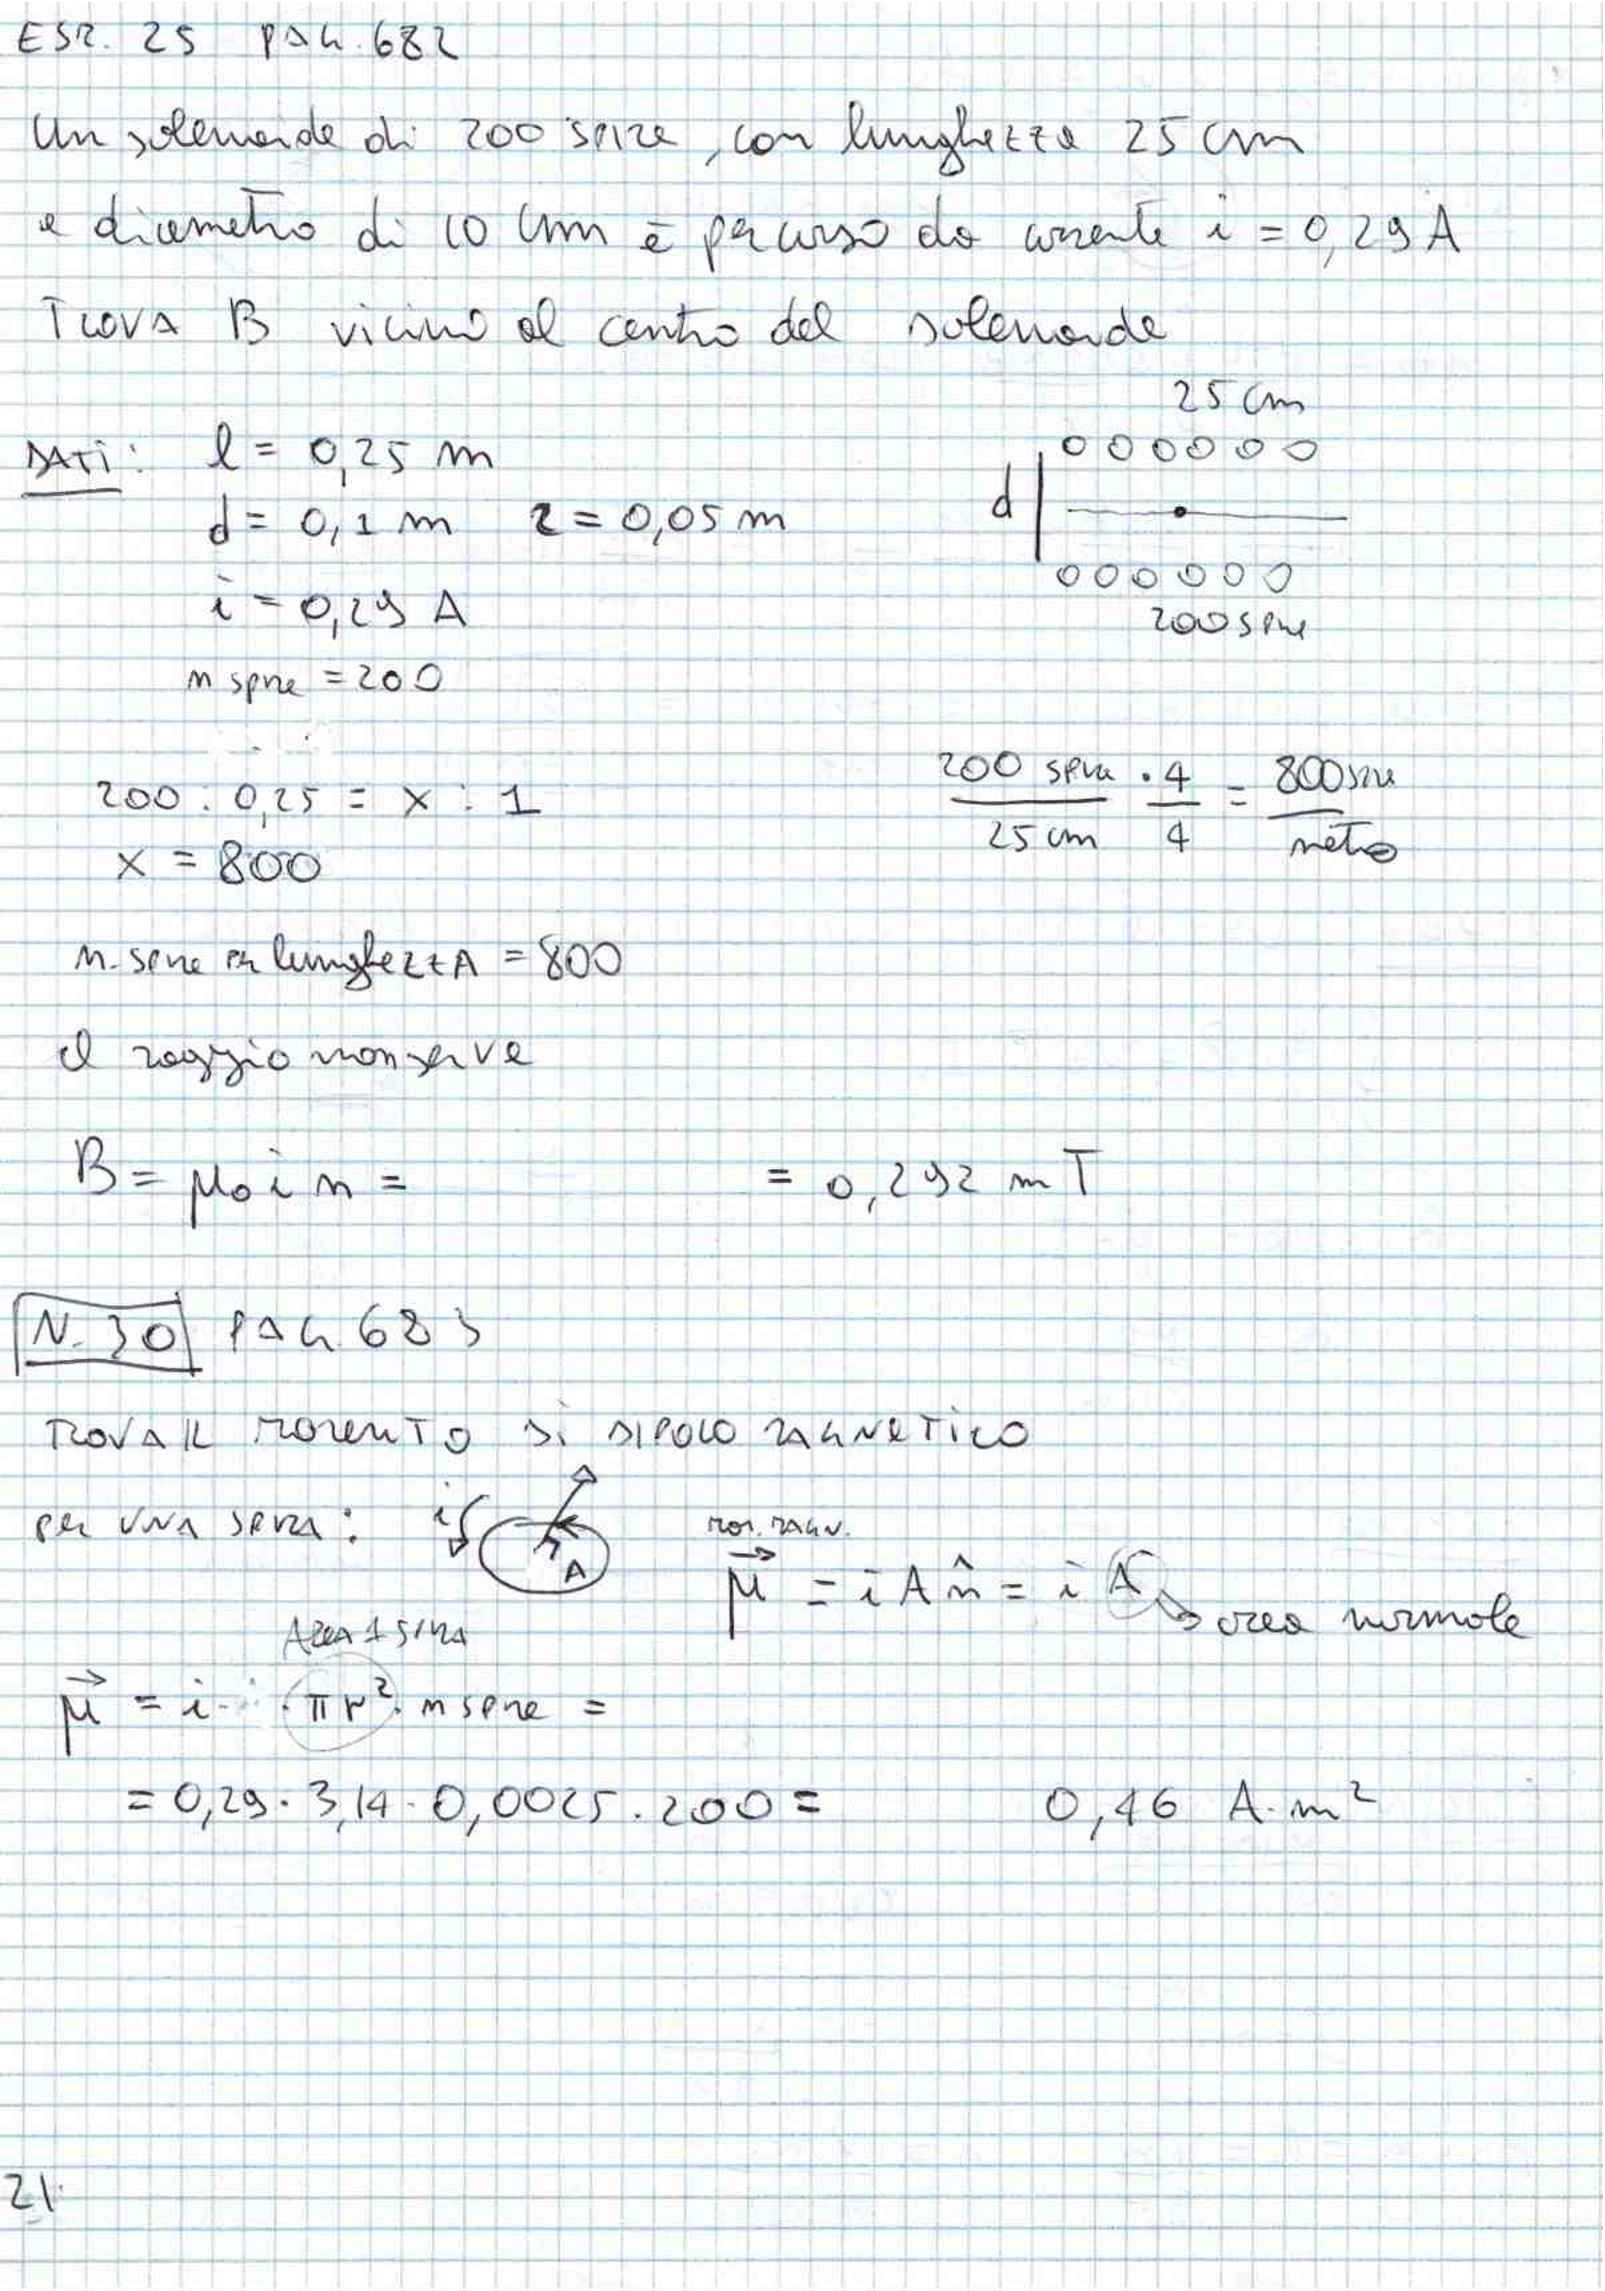 ESR. 25 PAG. 682
Un solenoide di 200 SPIRE, con lunghezza 25 cm
e diametro di 10 cm è percorso da corrente i = 0,29 A
TROVA B vicino al centro del solenoide
25 cm
DATI: l = 0,25 m
d = 0,1 m r = 0,05 m
d
i = 0,29 A
200 SPIRE
n spire = 200
200 : 0,25 = x : 1
x = 800
200 spire / 25 cm · 4/4 = 800 spire / metro
n. spire per lunghezza = 800
il raggio non serve
B = μ0 i n = = 0,292 mT
N. 30 PAG. 683
TROVA IL MOMENTO DI DIPOLO MAGNETICO
per UNA SPIRA: i A
MOM. MAGN.
μ⃗ = i A n̂ = i A area normale
AREA 1 SPIRA
μ⃗ = i · πr² · n spire =
= 0,29 · 3,14 · 0,0025 · 200 = 0,46 A·m²
21